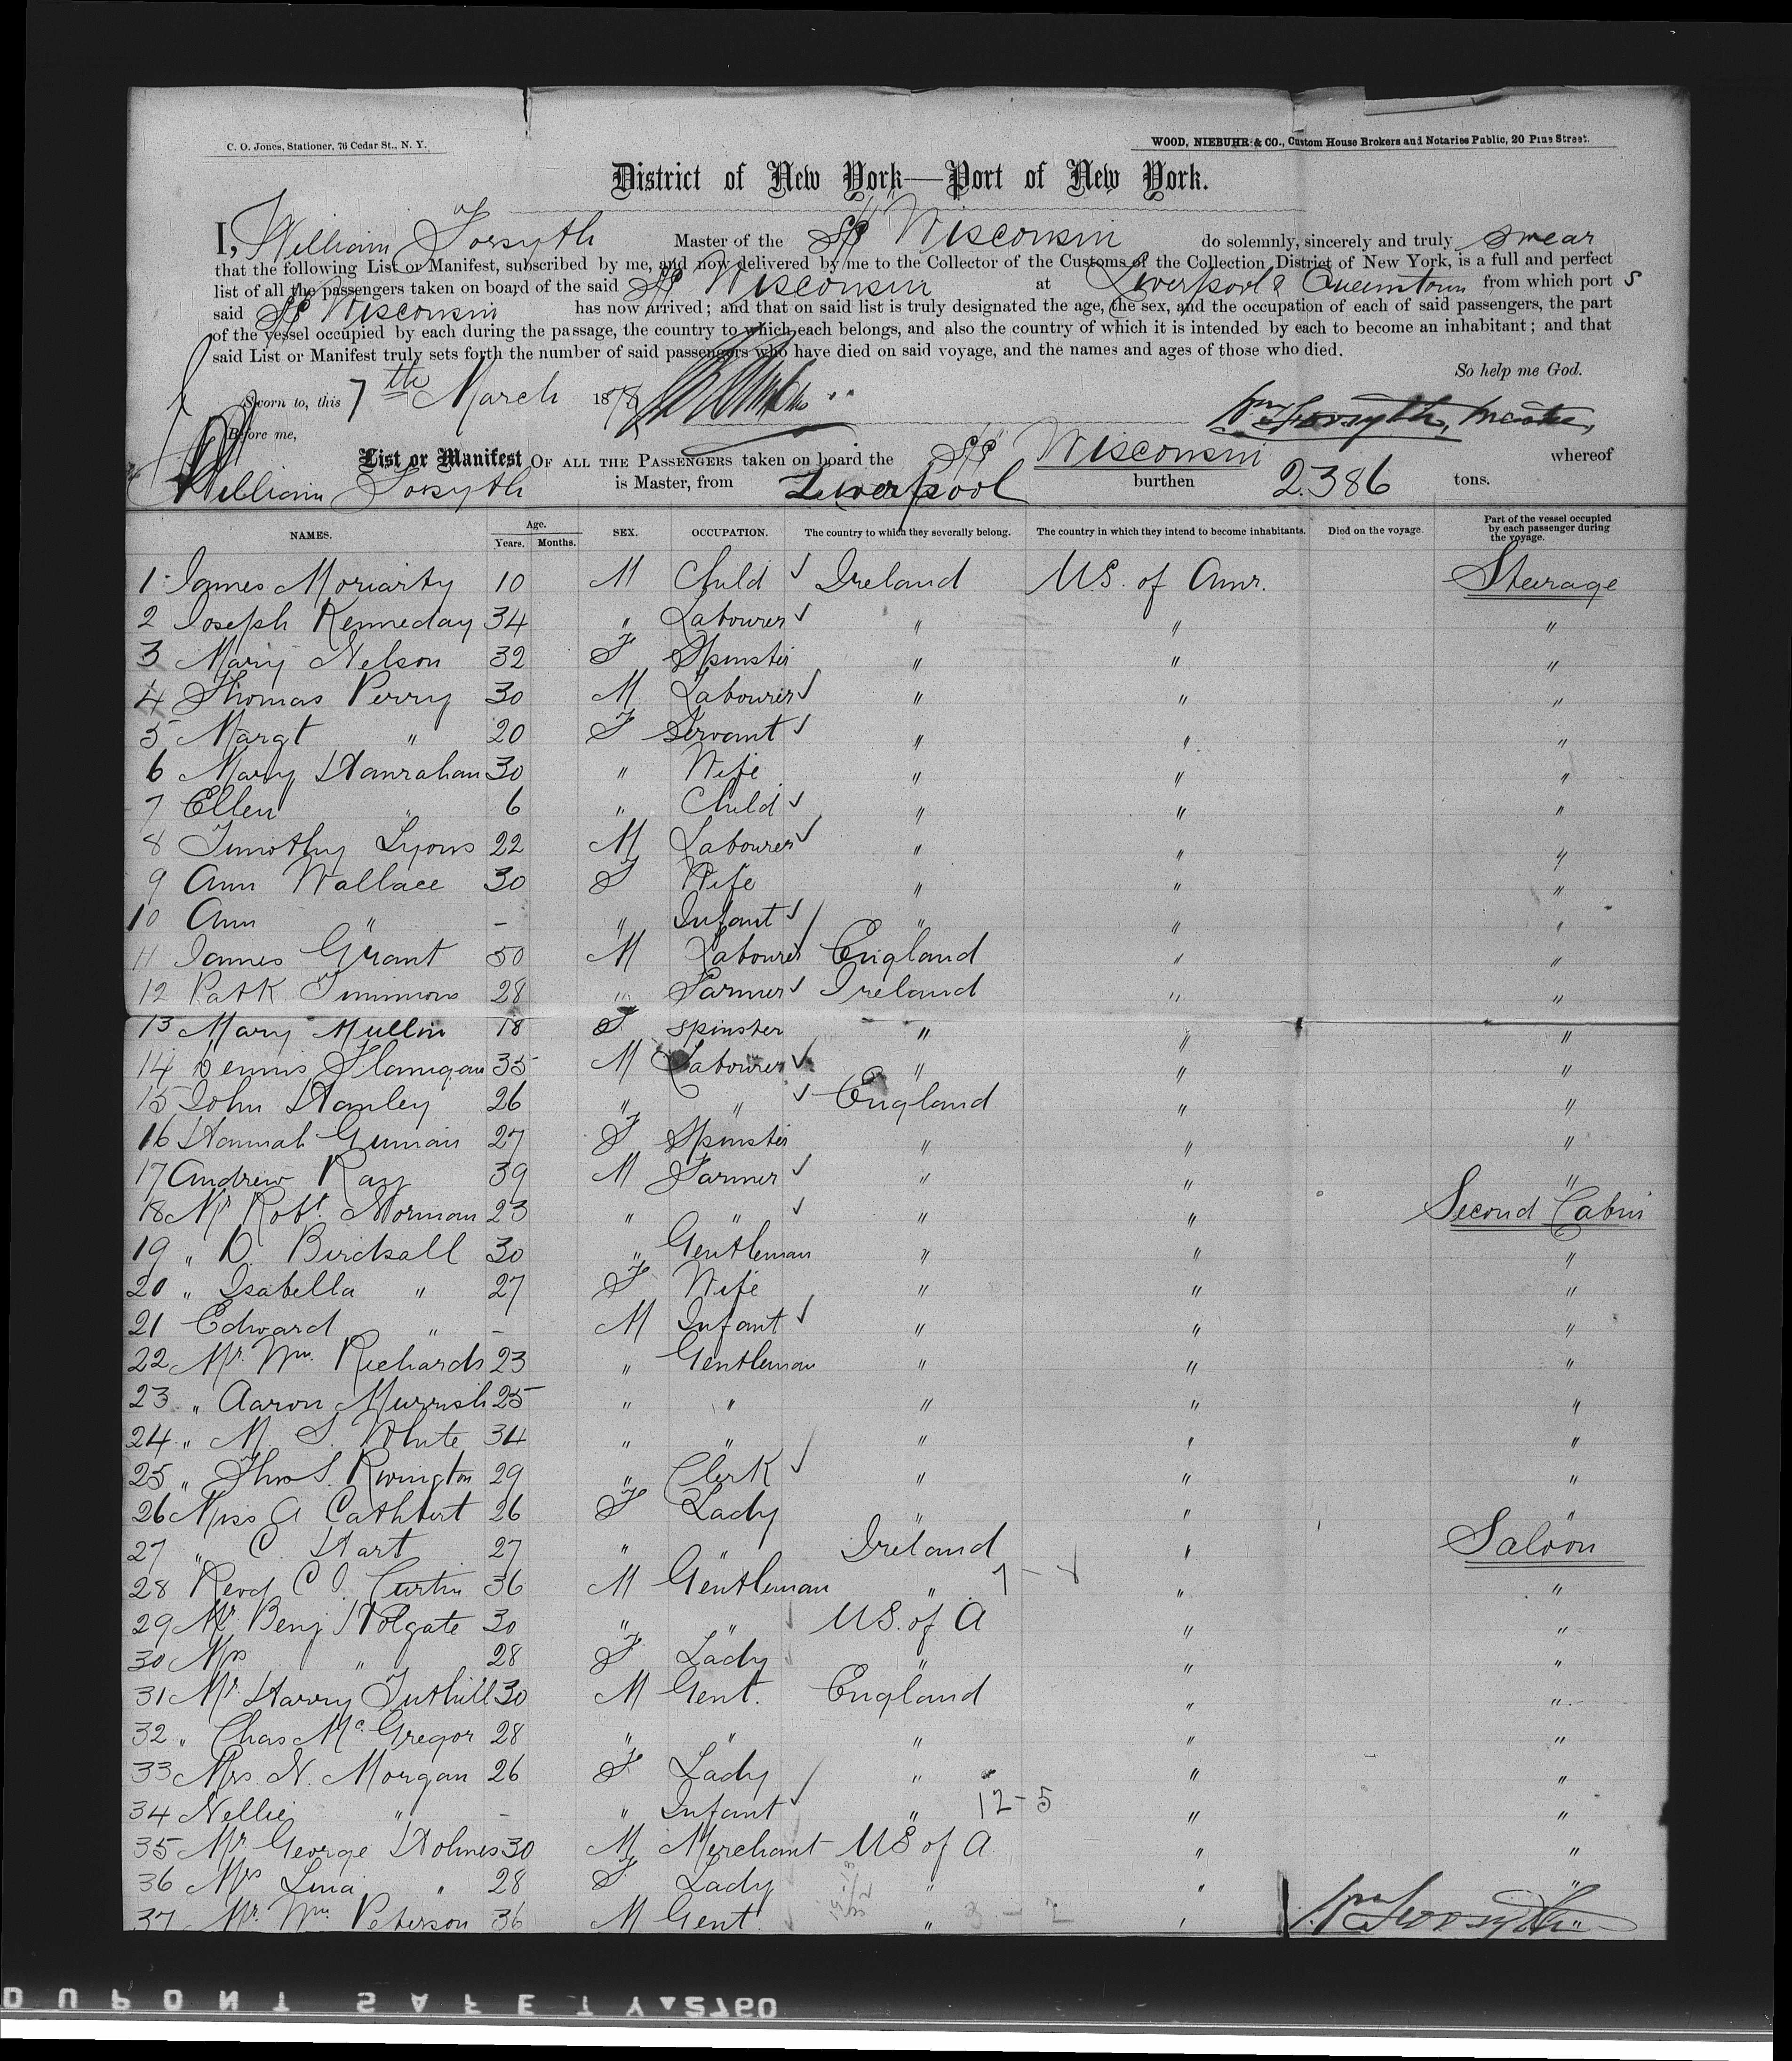 C. O. Jones, Stationer, 76 Cedar St., N. Y.
WOOD, NIEBUHR & CO., Custom House Brokers and Notaries Public, 20 Pine Street.
District of New York—Port of New York.
I, William Forsyth Master of the SS Wisconsin do solemnly, sincerely and truly swear
that the following List or Manifest, subscribed by me, and now delivered by me to the Collector of the Customs of the Collection District of New York, is a full and perfect
list of all the passengers taken on board of the said SS Wisconsin at Liverpool & Queenstown from which port s
said SS Wisconsin has now arrived; and that on said list is truly designated the age, the sex, and the occupation of each of said passengers, the part
of the vessel occupied by each during the passage, the country to which each belongs, and also the country of which it is intended by each to become an inhabitant; and that
said List or Manifest truly sets forth the number of said passengers who have died on said voyage, and the names and ages of those who died.
So help me God.
Sworn to, this 7th March 187
Wm Forsyth, Master,
Before me,
List or Manifest OF ALL THE PASSENGERS taken on board the SS Wisconsin whereof
William Forsyth is Master, from Liverpool burthen 2.386 tons.
NAMES. Age. Years. Months. SEX. OCCUPATION. The country to which they severally belong. The country in which they intend to become inhabitants. Died on the voyage. Part of the vessel occupied by each passenger during the voyage.
1 James Moriarty 10 M Child ✓ Ireland U.S. of Amr. Steerage
2 Joseph Kenneday 34 " Labourer ✓ " " "
3 Mary Nelson 32 F Spinster " " "
4 Thomas Perry 30 M Labourer ✓ " " "
5 Margt " 20 F Servant ✓ " " "
6 Mary Hanrahan 30 " Wife " " "
7 Ellen " 6 " Child ✓ " " "
8 Timothy Lyons 22 M Labourer ✓ " " "
9 Ann Wallace 30 F Wife " " "
10 Ann " - " Infant ✓ " " "
11 James Grant 50 M Labourer ✓ England " "
12 Patk Timmons 28 " Farmer ✓ Ireland " "
13 Mary Mullin 18 F Spinster " " "
14 Dennis Flanigan 35 M Labourer ✓ " " "
15 John Hanley 26 " " ✓ England " "
16 Hannah 27 F Spinster " " "
17 Andrew Ray 39 M Farmer ✓ " " "
18 Mr Robt. Norman 23 " " ✓ " " Second Cabin
19 " D. Birdsall 30 " Gentleman " " "
20 " Isabella " 27 F Wife " " "
21 Edward " - M Infant ✓ " " "
22 Mr. Wm. Richards 23 " Gentleman " " "
23 " Aaron Murrish 25 " " " " "
24 " M. S. White 34 " " " " "
25 " Thos S. Rivington 29 " Clerk ✓ " " "
26 Miss A Cathbert 26 F Lady " " "
27 " C. Hart 27 " " Ireland " Saloon
28 Revd C. J. Curtin 36 M Gentleman " " "
29 Mr Benj Holgate 30 " " U.S. of A " "
30 Mrs " 28 F Lady " " "
31 Mr. Harry Tuthill 30 M Gent. England " "
32 " Chas McGregor 28 " " " " "
33 Mrs. N. Morgan 26 F Lady " " "
34 Nellie " - " Infant ✓ " 12-5 " "
35 Mr George Holmes 30 M Merchant U S of A " "
36 Mrs Lina " 28 F Lady " " "
37 Mr. Wm. Peterson 36 M Gent. " "
Wm Forsyth
DUPONT SAFETY 2760